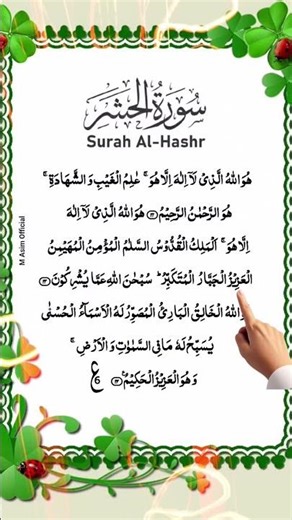 سُورَةُ الْحَشْرِ
Surah Al-Hashr
هُوَ اللّٰهُ الَّذِىْ لَاۤ اِلٰهَ اِلَّا هُوَ ۚ عٰلِمُ الْغَيْبِ وَ الشَّهَادَةِ ۚ
هُوَ الرَّحْمٰنُ الرَّحِيْمُ هُوَ اللّٰهُ الَّذِىْ لَاۤ اِلٰهَ
اِلَّا هُوَ ۚ اَلْمَلِكُ الْقُدُّوْسُ السَّلٰمُ الْمُؤْمِنُ الْمُهَيْمِنُ
الْعَزِيْزُ الْجَبَّارُ الْمُتَكَبِّرُ ؕ سُبْحٰنَ اللّٰهِ عَمَّا يُشْرِكُوْنَ
اللّٰهُ الْخَالِقُ الْبَارِئُ الْمُصَوِّرُ لَهُ الْاَسْمَآءُ الْحُسْنٰى
يُسَبِّحُ لَهٗ مَا فِى السَّمٰوٰتِ وَ الْاَرْضِ ۚ
وَ هُوَ الْعَزِيْزُ الْحَكِيْمُ ع
M Asim Official